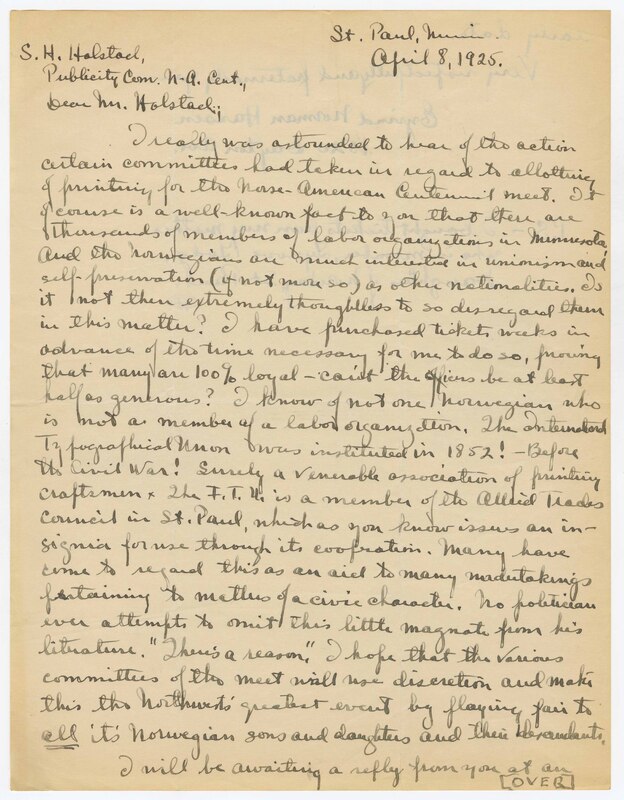 St. Paul, Minn
April 8, 1925.
S. H. Holstad,
Publicity Com. N-A. Cent.,
Dear Mr. Holstad;
I really was astounded to hear of the action
certain committees had taken in regard to allotting
of printing for the Norse-American Centennial meet. It
of course is a well-known fact to you that there are
thousands of members of labor organizations in Minnesota,
and the norwegians are much interested in unionism and
self-preservation (if not more so) as other nationalities. Is
it not then extremely thoughtless to so disregard them
in this matter? I have purchased tickets weeks in
advance of the time necessary for me to do so, proving
that many are 100% loyal - can't the officers be at least
half as generous? I know of not one Norwegian who
is not a member of a labor organization. The International
Typographical Union was instituted in 1852! - Before
the Civil War! Surely a venerable association of printing
craftsmen. The I. T. U. is a member of the Allied Trades
Council in St. Paul, which as you know issues an in-
signia for use through its cooperation. Many have
come to regard this as an aid to many undertakings
pertaining to matters of a civic character. No politician
ever attempts to omit this little magnate from his
literature. "There's a reason." I hope that the various
committees of the meet will use discretion and make
this the Northwest's greatest event by playing fair to
all it's Norwegian sons and daughters and their descendants.
I will be awaiting a reply from you at an
[OVER]